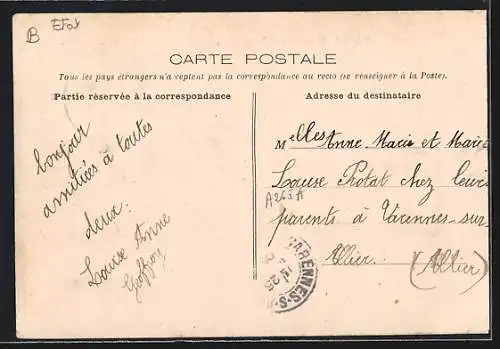 B Etat
CARTE POSTALE
Tous les pays étrangers n'acceptent pas la correspondance au recto (se renseigner à la Poste).
Partie réservée à la correspondance
Adresse du destinataire
bonjour
amitiées à toutes
deux.
Louise Anne
Geoffroy
Melles Anne. Marie et Marie
Louise Rotat chez leurs
parents à Varennes-sur-
Allier. (Allier)
A265A
VARENNES-S